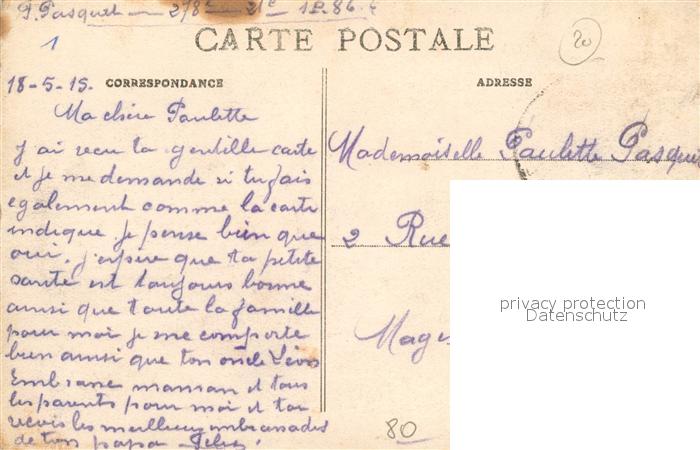 P. Pasquet — 278e — 21e
1
CARTE POSTALE
20
18-5-15. CORRESPONDANCE
ADRESSE
Ma chère Paulette
j'ai recu ta gentille carte
et je me demande si tu fais
également comme la carte
indique je pense bien que
oui. j'espère que ta petite
santé est toujours bonne
ainsi que toute la famille
pour moi je me comporte
bien ainsi que ton oncle Léon
Embrasse maman et tous
les parents pour moi et toi
recois les meilleurs embrassades
de ton papa
Mademoiselle Paulette Pasqu
2 Rue
privacy protection
Datenschutz
80